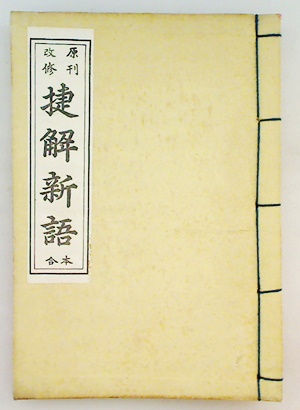 原刊
改修
捷解新語
合本